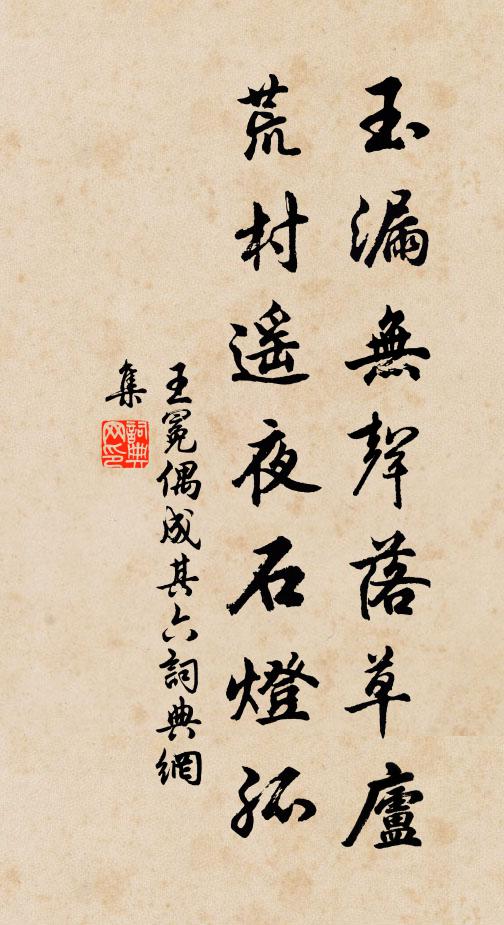 玉漏無聲落草廬
荒村遥夜石燈孤
王冕偶成其六詞典網
集
詞典
网印